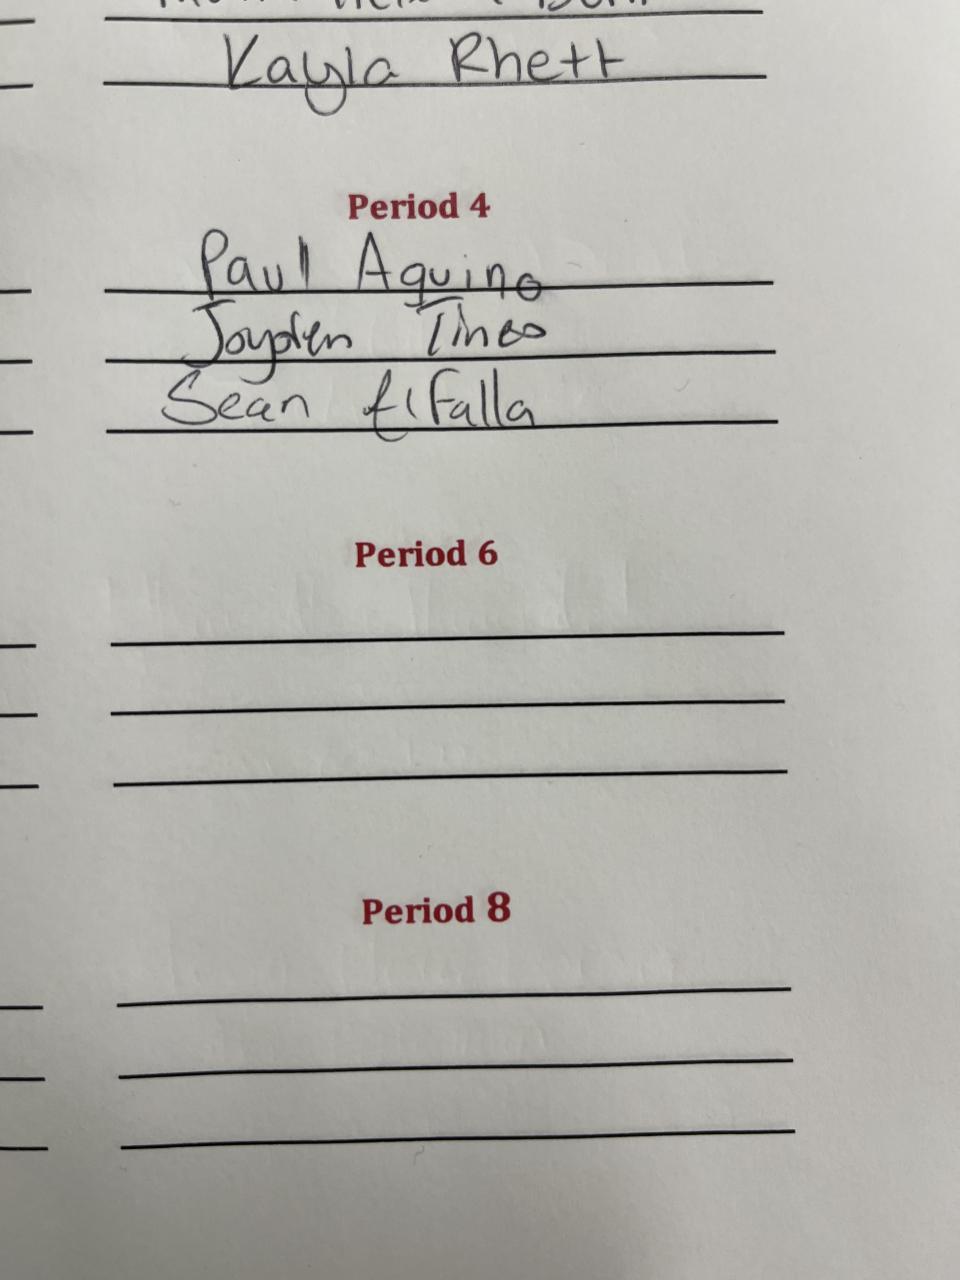 Kayla Rhett
Period 4
Paul Aquino
Jayden Tineo
Sean
Period 6
Period 8